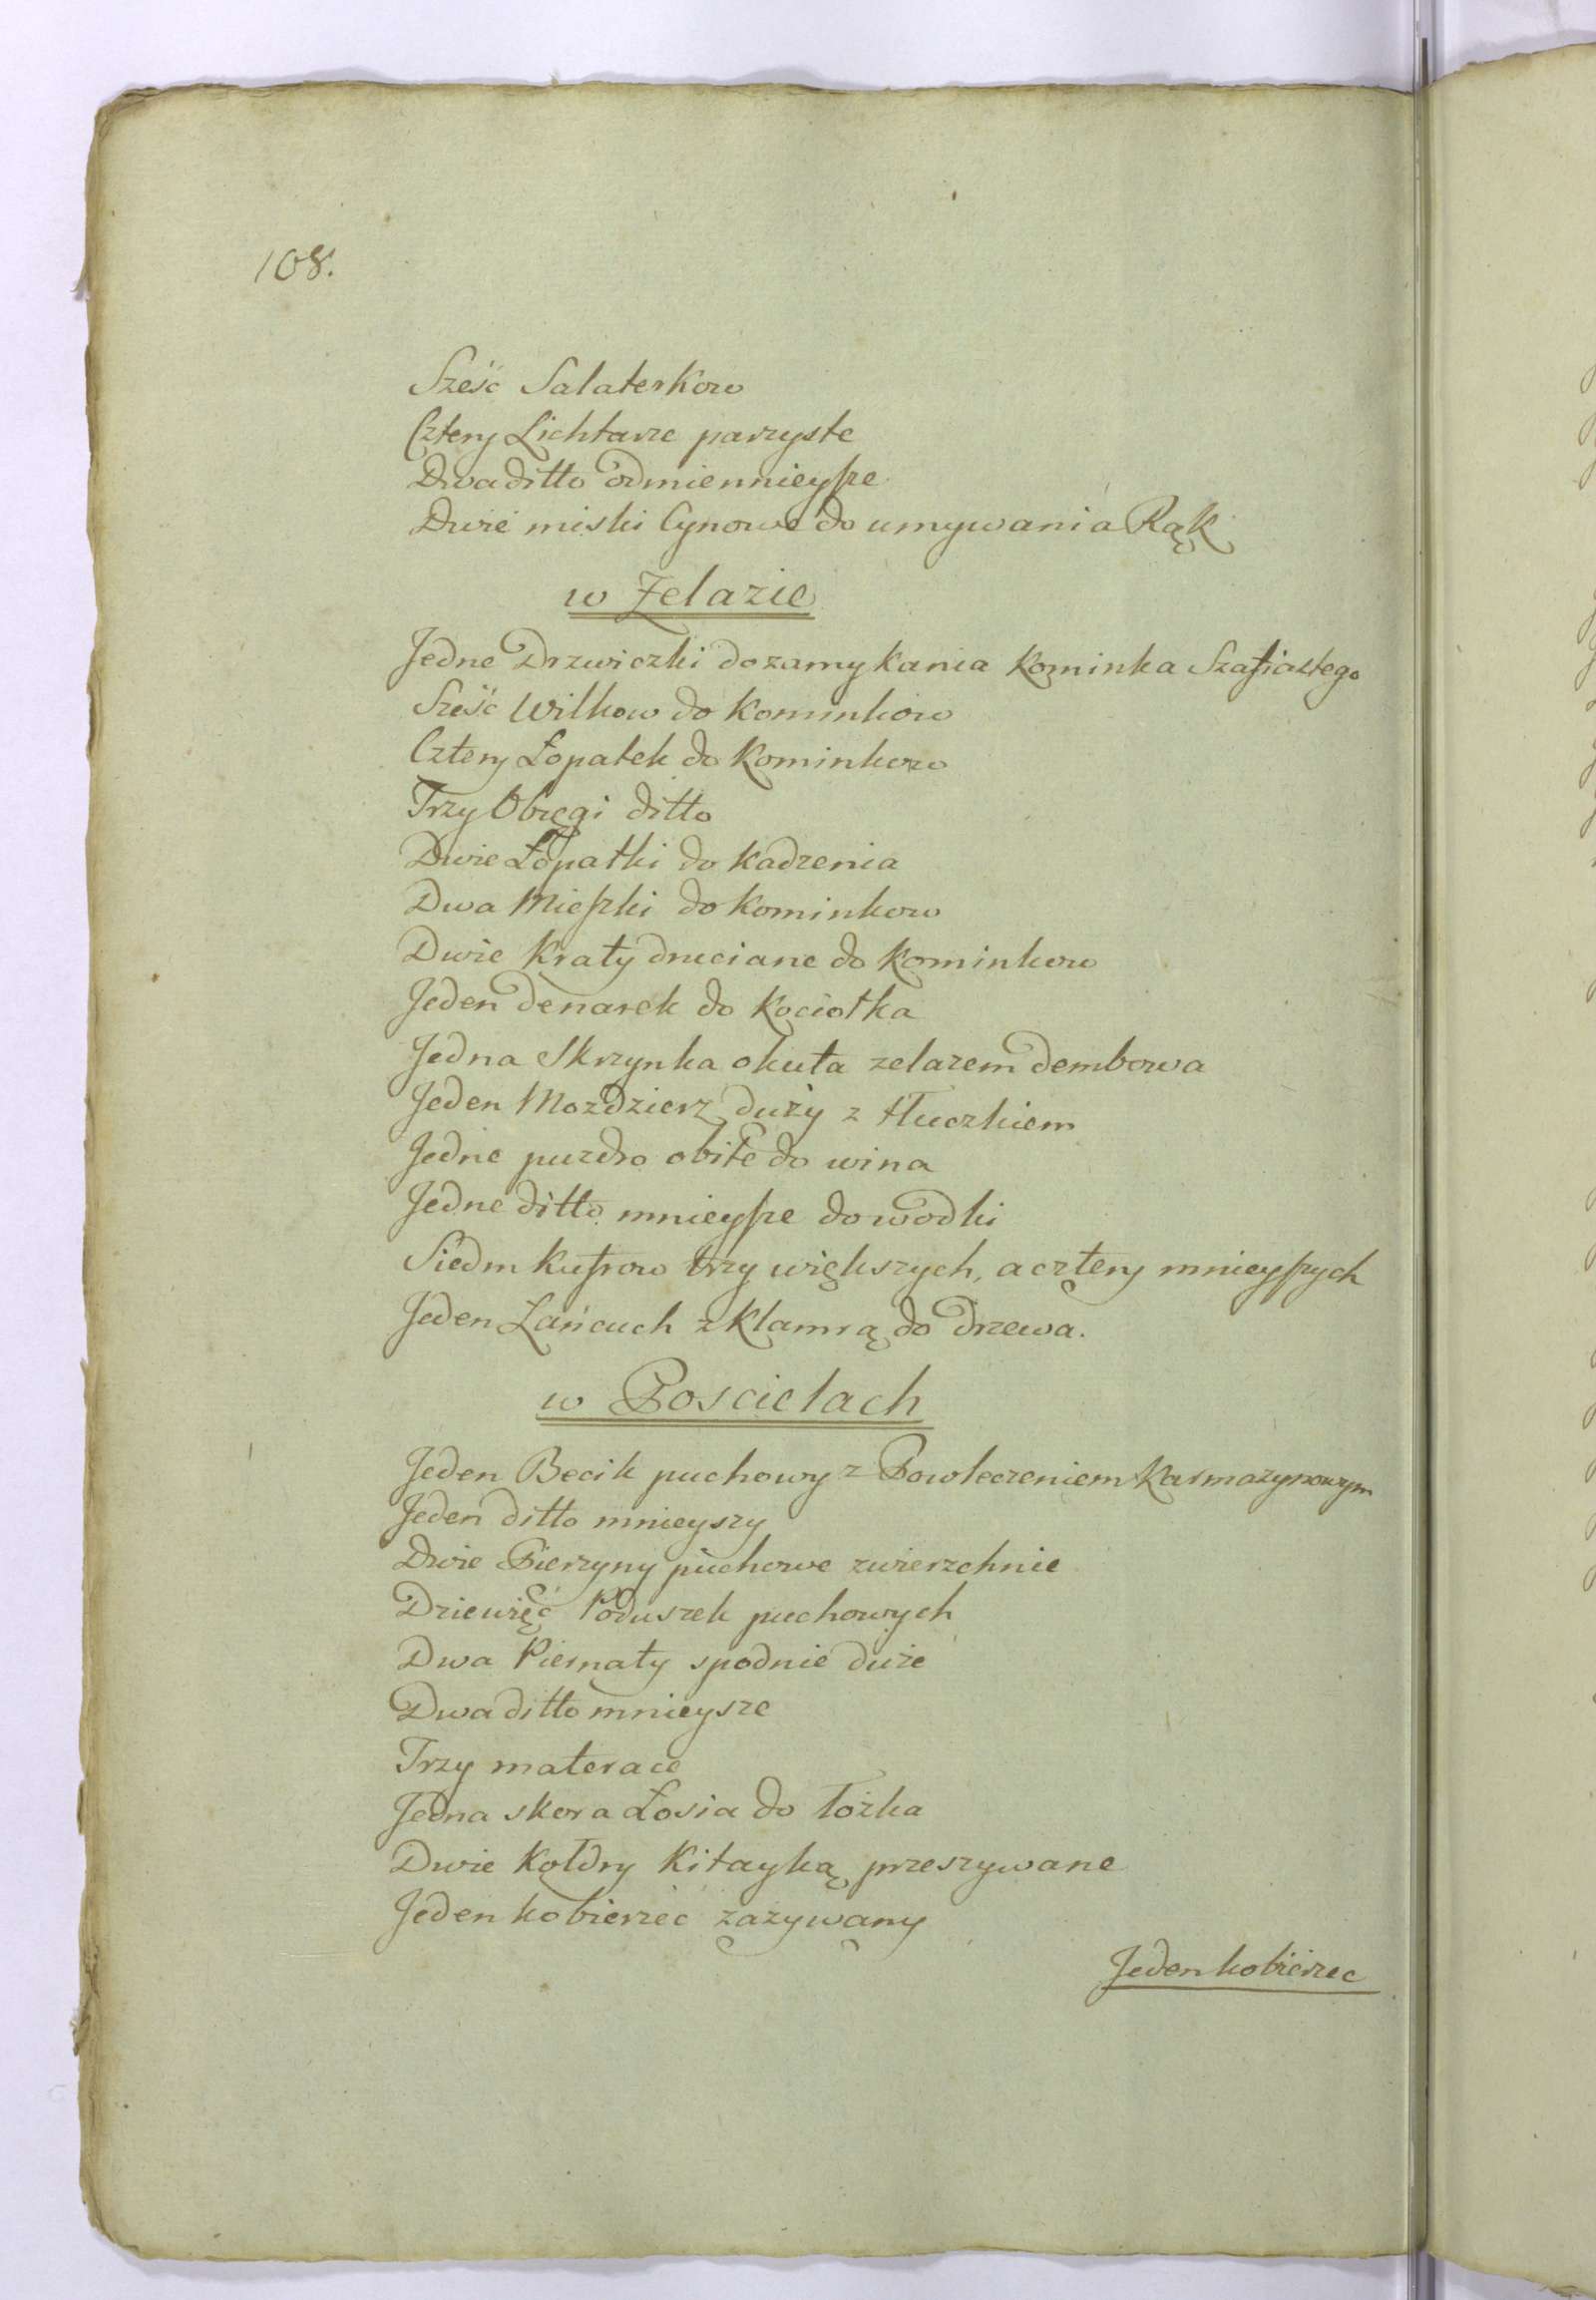 108.
Sześć Salaterkow
Cztery Lichtarze parzyste
Dwa ditto odmiennieysze
Dwie miski Cynowe do umywania Rąk
w Zelazie
Jedne Drzwiczki do zamykania Kominka Szafiastego
Sześć Wilkow do Kominkow
Cztery Łopatek do Kominkow
Trzy Obręgi ditto
Dwie Łopatki do Kadzenia
Dwa Mieszki do Kominkow
Dwie Kraty druciane do Kominkow
Jeden denarek do Kociołka
Jedna Skrzynka okuta zelazem dembowa
Jeden Mozdzierz duży z tłuczkiem
Jedne puzdro obite do wina
Jedne ditto mnieysze do wodki
Siedm Kufrow trzy większych, a cztery mnieyszych
Jeden Łańcuch z Klamrą do Drzewa.
w Poscielach
Jeden Becik puchowy z Powleczeniem Karmazynowym
Jeden ditto mnieyszy
Dwie Pierzyny puchowe zwierzchnie
Dziewięć Poduszek puchowych
Dwa Piernaty spodnie duże
Dwa ditto mnieysze
Trzy materace
Jedna skora Łosia do łożka
Dwie Kołdry Kitayką przeszywane
Jeden kobierzec zazywany
Jeden kobierzec